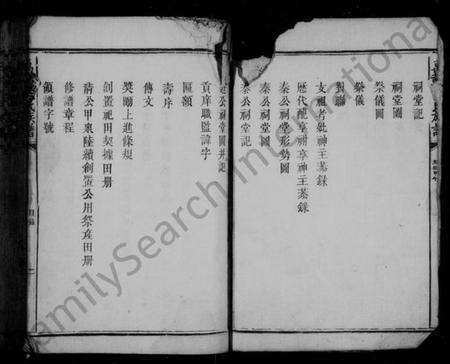 祠堂記
祠堂圖
祭儀圖
祭儀
對聯
支祖考妣神主墓錄
歷代配享祔享神主墓錄
秦公祠堂形勢圖
秦公祠堂圖
秦公祠堂記
公祠堂圖并記
貢庠職監諱字
匾額
壽序
傳文
獎勵上進條規
創置祀田契據田册
清公甲東陸續創置公用祭產田册
修譜章程
領譜字號
FamilySearch International